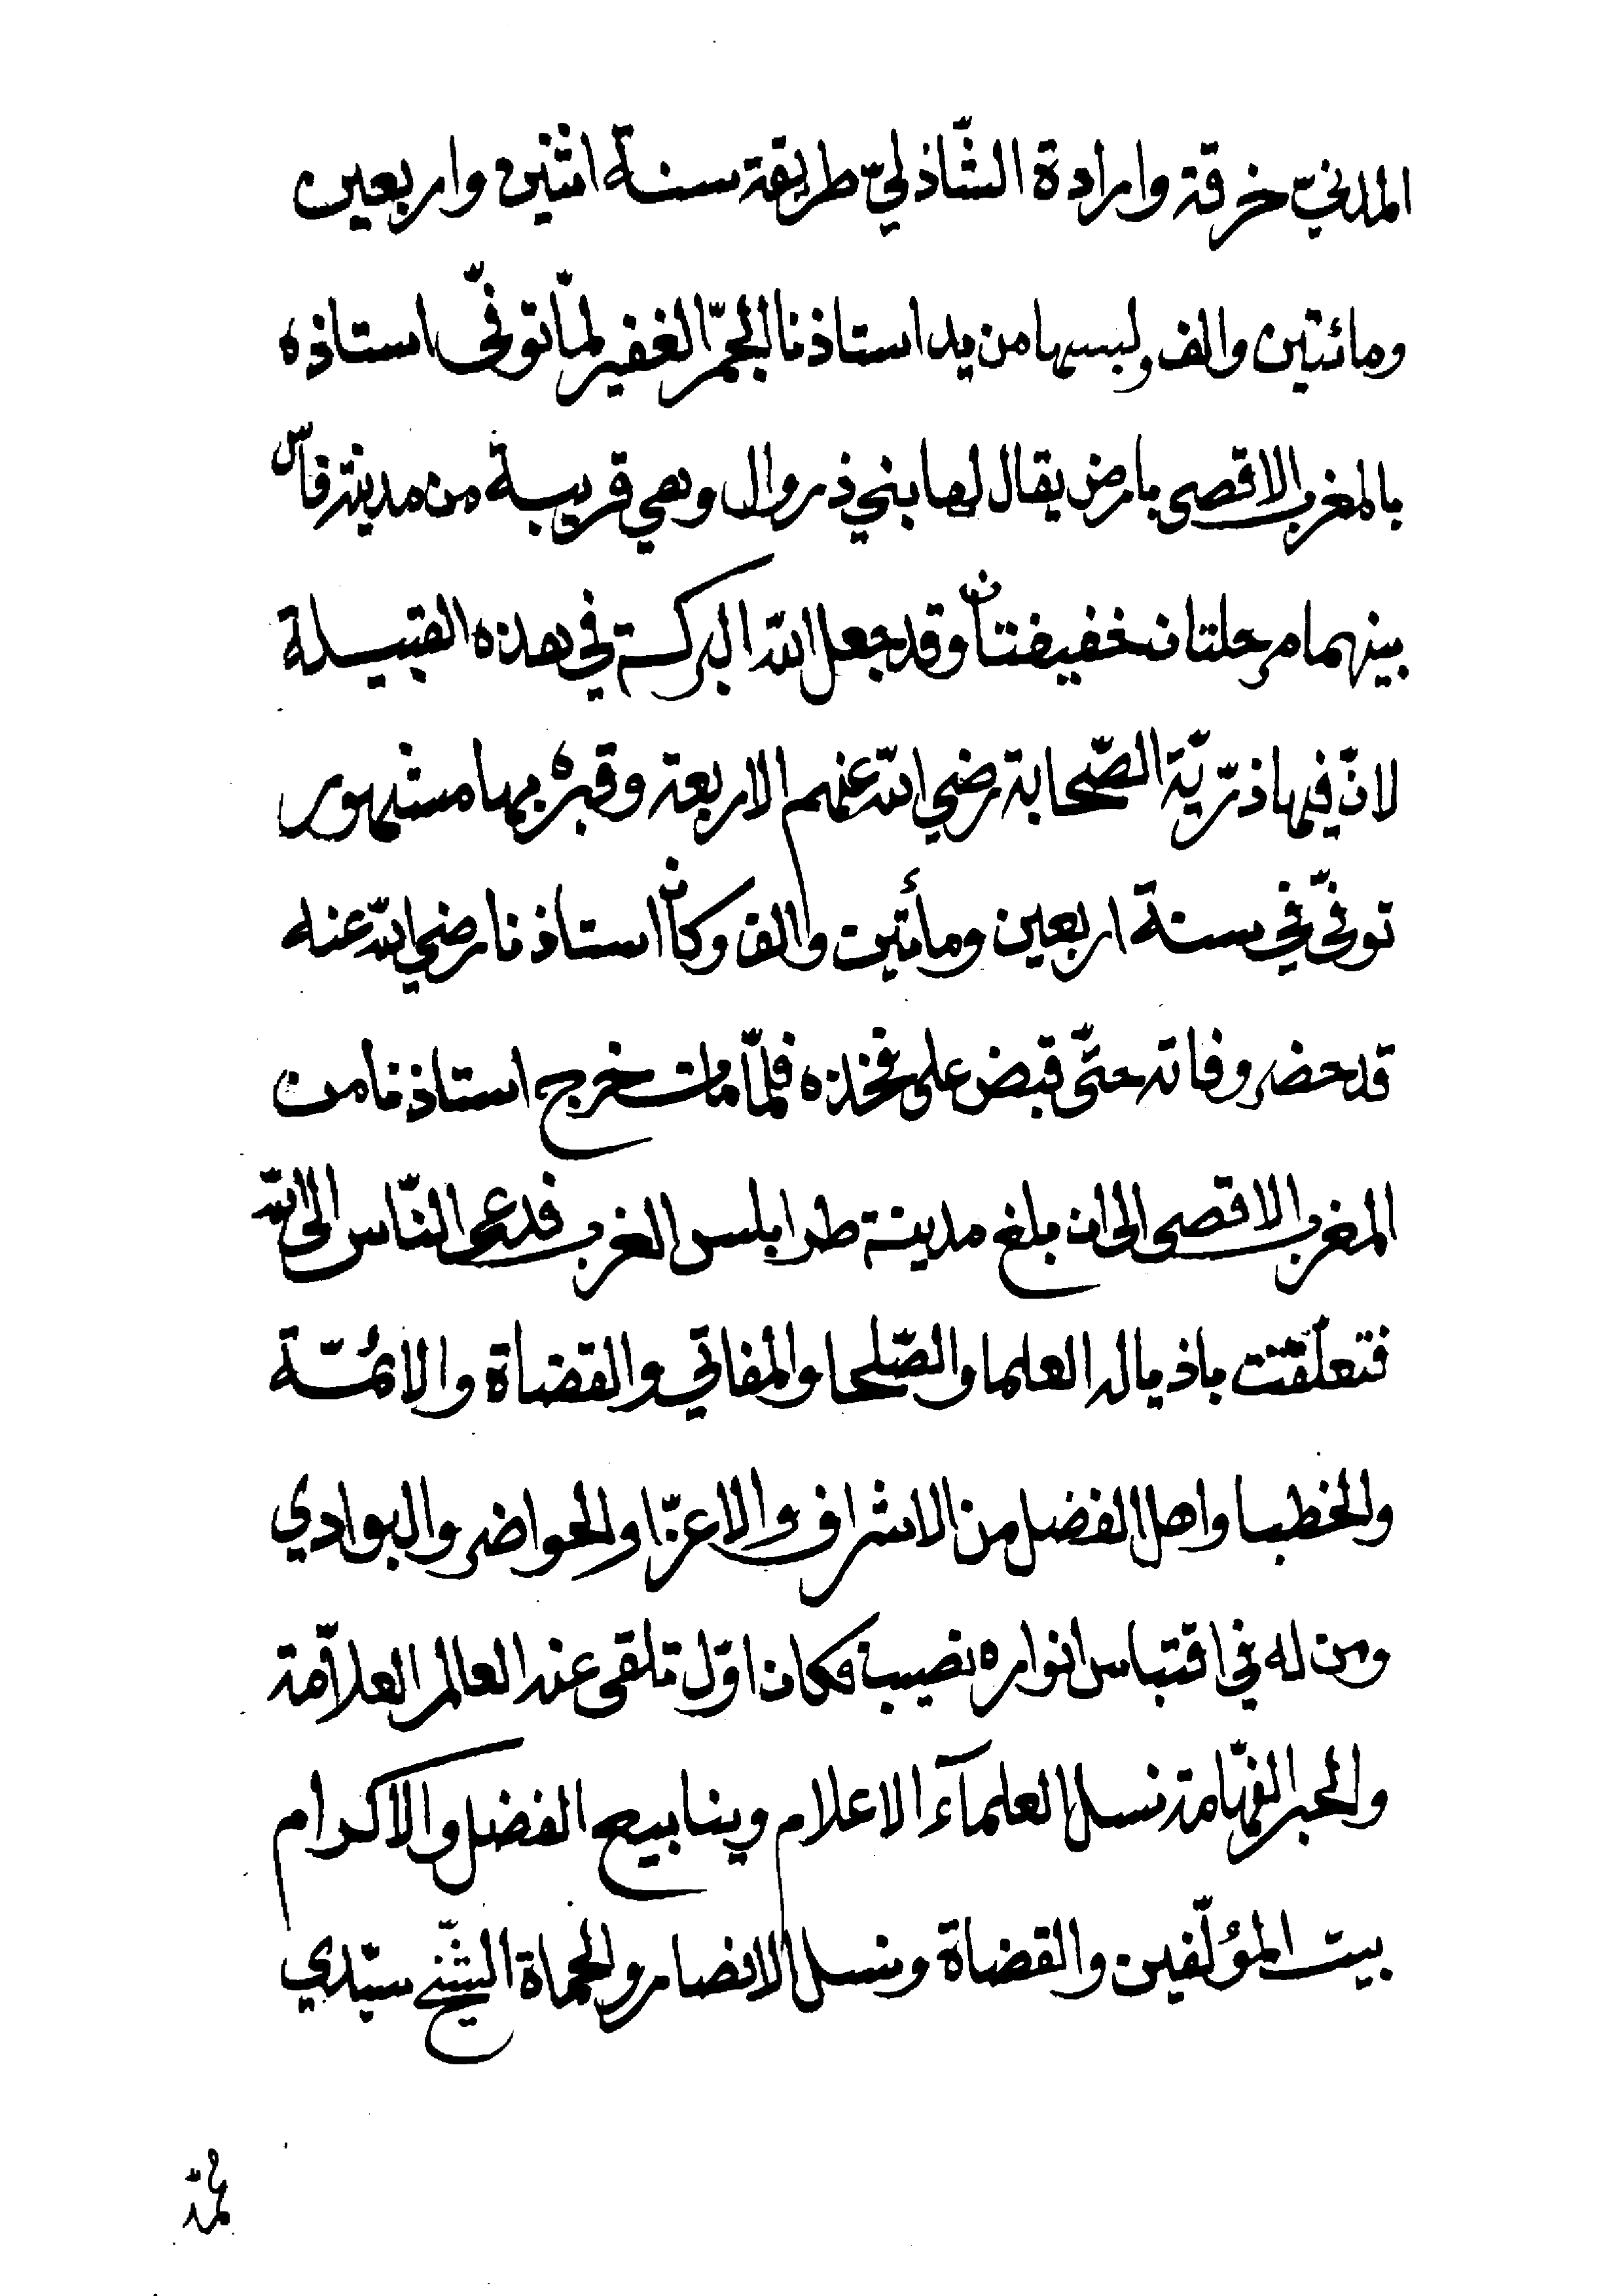 المدنيّ خرقة وارادة الشّاذليّ طريقة سنة اثنين واربعين
ومائتين والف ولبسها من يد استاذنا الجمّ الغفير لمّا توفّى استاذه
بالمغرب الاقصى بارض يقال لها بني ذروال وهي قريبة من مدينة فاس
بينهما مرحلتان خفيفتان وقد جعل الله البركة في هذه القبيلة
لانّ فيها ذرّيّة الصّحابة رضي الله عنهم الاربعة وقبره بها مشهور
توفّي في سنة اربعين ومأتين والف وكان استاذنا رضي الله عنه
قد حضر وفاته حتّى قبض على فخذه فلمّا مات خرج استاذنا من
المغرب الاقصى الى ان بلغ مدينة طرابلس الغرب فدعى النّاس الى الله
فتعلّقت باذياله العلما والصّلحا والمفاتي والقضاة والائمّة
والخطبا واهل الفضل من الاشراف والاعزّا والحواضر والبوادي
ومن له في اقتباس انواره نصيب فكان اوّل تلقى عنه العالم العلاّمة
والحبر الفهّامة نسل العلمآء الاعلام وينابيع الفضل والاكرام
بيت المؤلّفين والقضاة ونسل الانصار والحماة الشّيخ سيّدي
محمّد